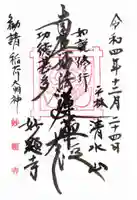 令和四年十二月二十一日
下総 清水山
妙顕寺
如説修行
南無妙法蓮華経
功徳甚多
勧請 稲荷大明神